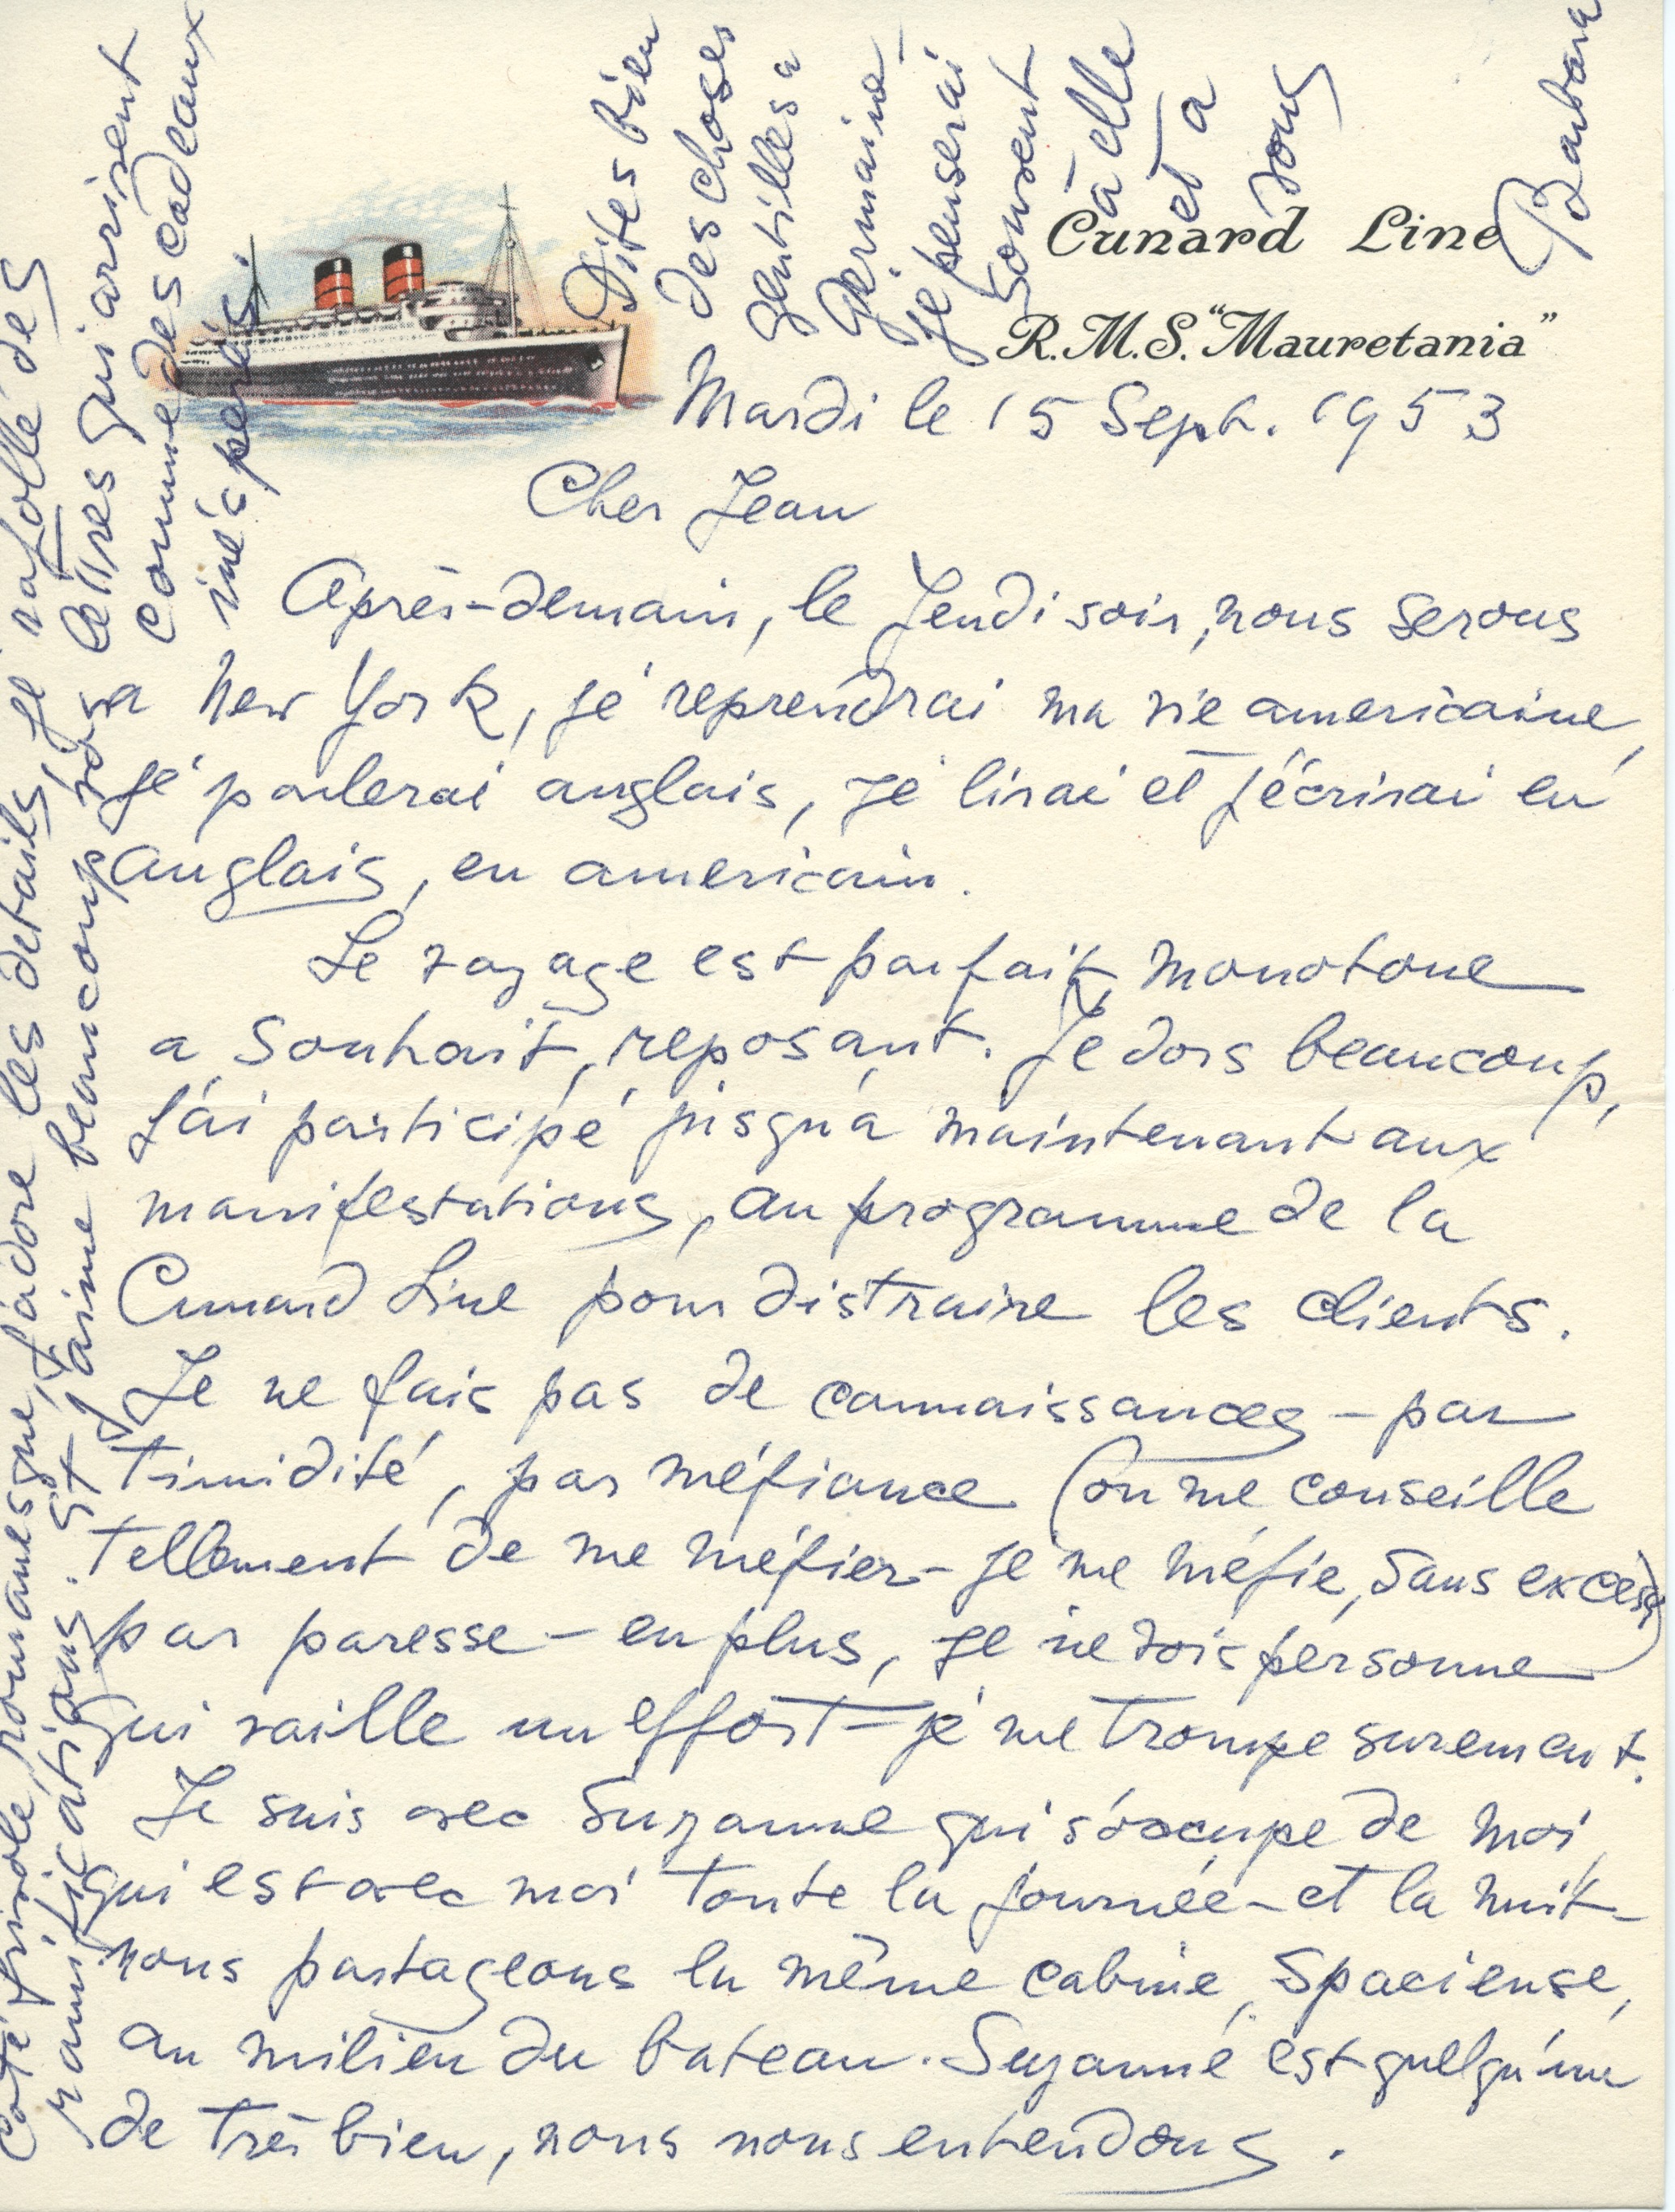 Cunard Line
R.M.S. "Mauretania"
Mardi le 15 Sept. 1953
Cher Jean
Après-demain, le Jeudi soir, nous serons
a New York, je reprendrai ma vie americaine,
je parlerai anglais, je lirai et j'écrirai en
anglais, en americain.
Le voyage est parfait, monotone
a souhait, reposant. Je dors beaucoup,
J'ai participé jusqu'a maintenant aux
manifestations, au programme de la
Cunard Line pour distraire les clients.
Je ne fais pas de connaissances – par
timidité, par méfiance (on me conseille
tellement de me méfier – je me méfie, sans excès)
par paresse – en plus, je ne vois personne
qui vaille un effort – je me trompe surement.
Je suis avec Suzanne qui s'occupe de moi,
qui est avec moi toute la journée – et la nuit –
nous partageons la même cabine, spacieuse,
au milieu du bateau. Suzanne est quelqu'un
de très bien, nous nous entendons.
Coté frivole, romanesque, j'adore les details, je rafolle des
ramifications. Et j'aime beaucoup vos lettres qui arrivent
comme des cadeaux
inésperés.
Dites bien
des choses
gentilles a
Germaine –
je penserai
souvent
à elle
et a
vous
Barbara